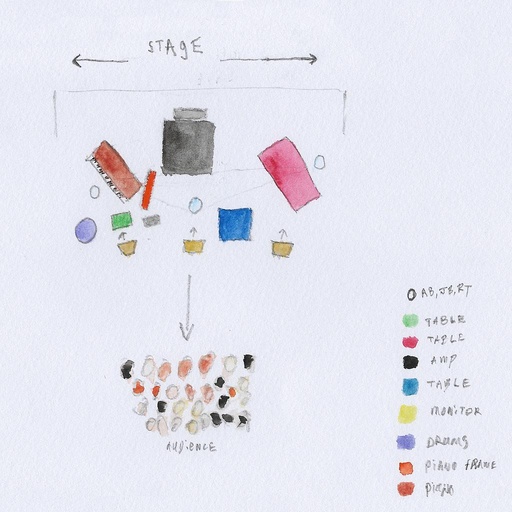 STAGE
AUDIENCE
AB, JB, RT
TABLE
TABLE
AMP
TABLE
MONITOR
DRUMS
PIANO FRAME